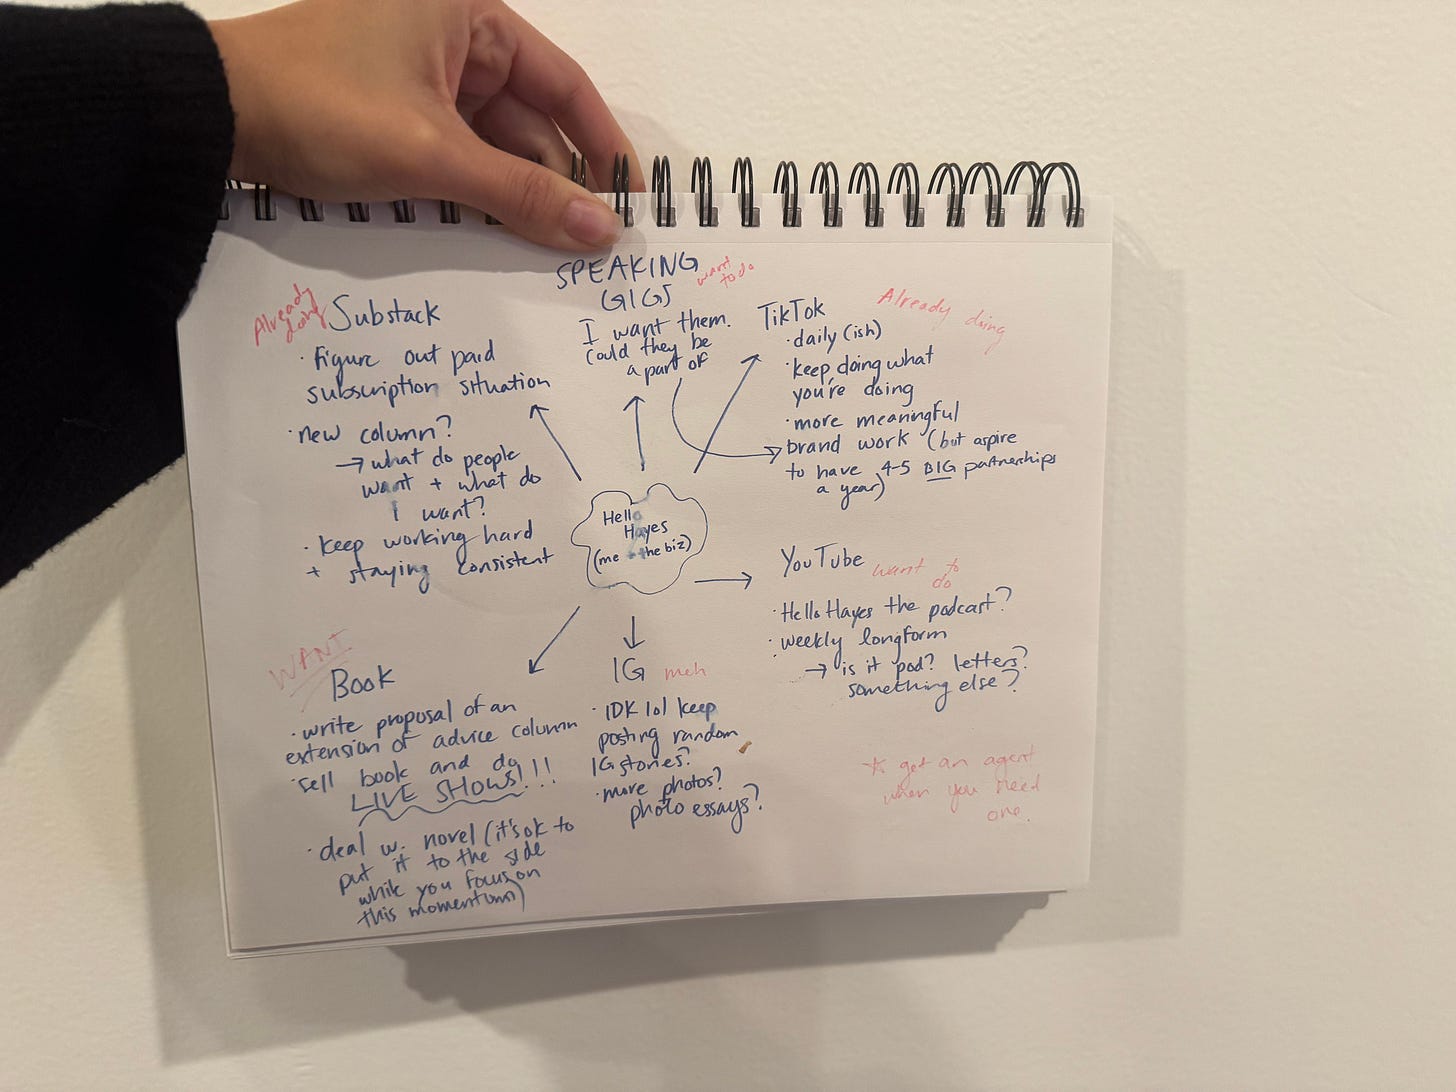 SPEAKING
GIGS
want
to do
I want them.
Could they be
a part of
Already
doing
Substack
· figure out paid
subscription situation
· new column?
→ what do people
want + what do
I want?
· keep working hard
+ staying consistent
TikTok
Already doing
· daily (ish)
· keep doing what
you're doing
· more meaningful
brand work (but aspire
to have 4-5 BIG partnerships
a year)
Hello
Hayes
(me + the biz)
YouTube
want to
do
· Hello Hayes the podcast?
· weekly longform
→ is it pod? letters?
something else?
WANT
Book
· write proposal of an
extension of advice column
· sell book and do
LIVE SHOWS!!!
· deal w. novel (it's ok to
put it to the side
while you focus on
this momentum)
IG meh
· IDK lol keep
posting random
IG stories?
· more photos?
photo essays?
☆ get an agent
when you need
one.